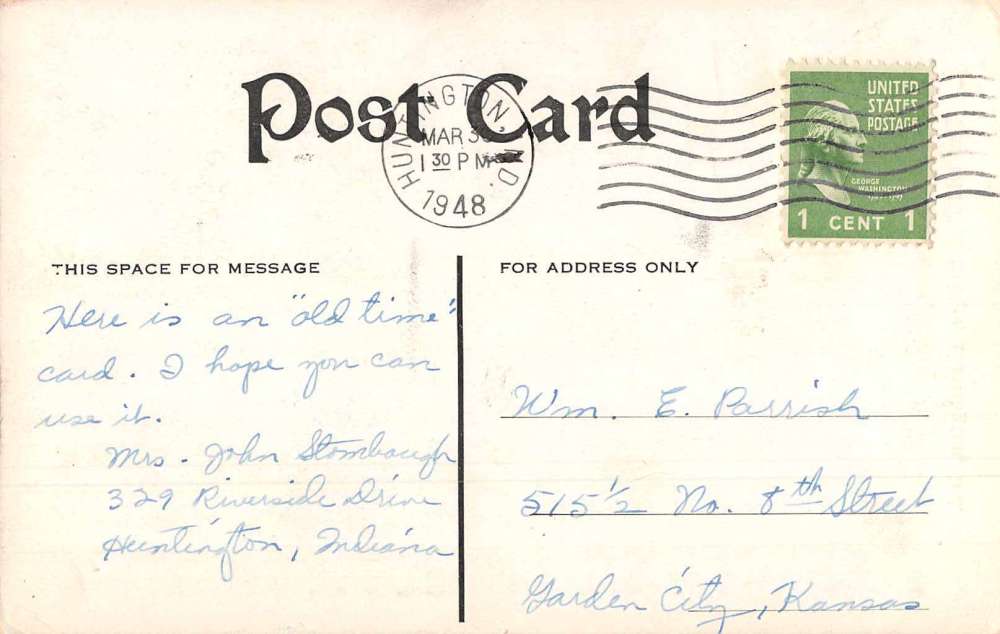 Post Card
HUNTINGTON, IND.
MAR 3
1 30 PM
1948
UNITED
STATES
POSTAGE
GEORGE
WASHINGTON
1 CENT 1
THIS SPACE FOR MESSAGE
Here is an "old time"
card. I hope you can
use it.
Mrs. John Stombaugh
329 Riverside Drive
Huntington, Indiana
FOR ADDRESS ONLY
Wm. E. Parrish
515 1/2 No. 8th Street
Garden City, Kansas